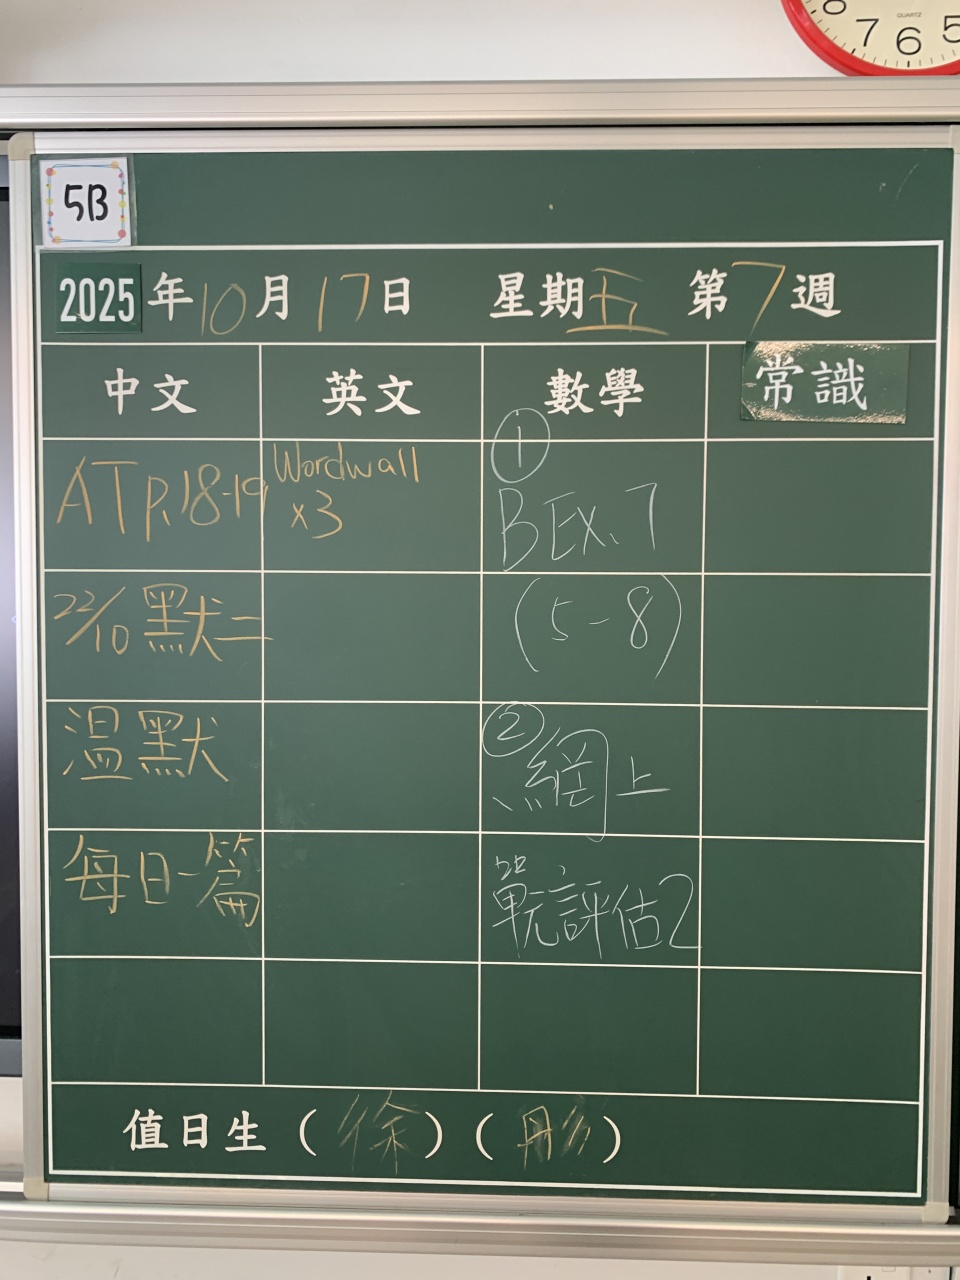 QUARTZ
8 7 6 5
5B
2025年10月17日 星期五 第7週
中文 英文 數學 常識
AT p.18-19 Wordwall x3 ① B Ex.7
22/10 默二 (5-8)
溫默 ② 網上
每日一篇 單元評估2
值日生(徐)(彤)